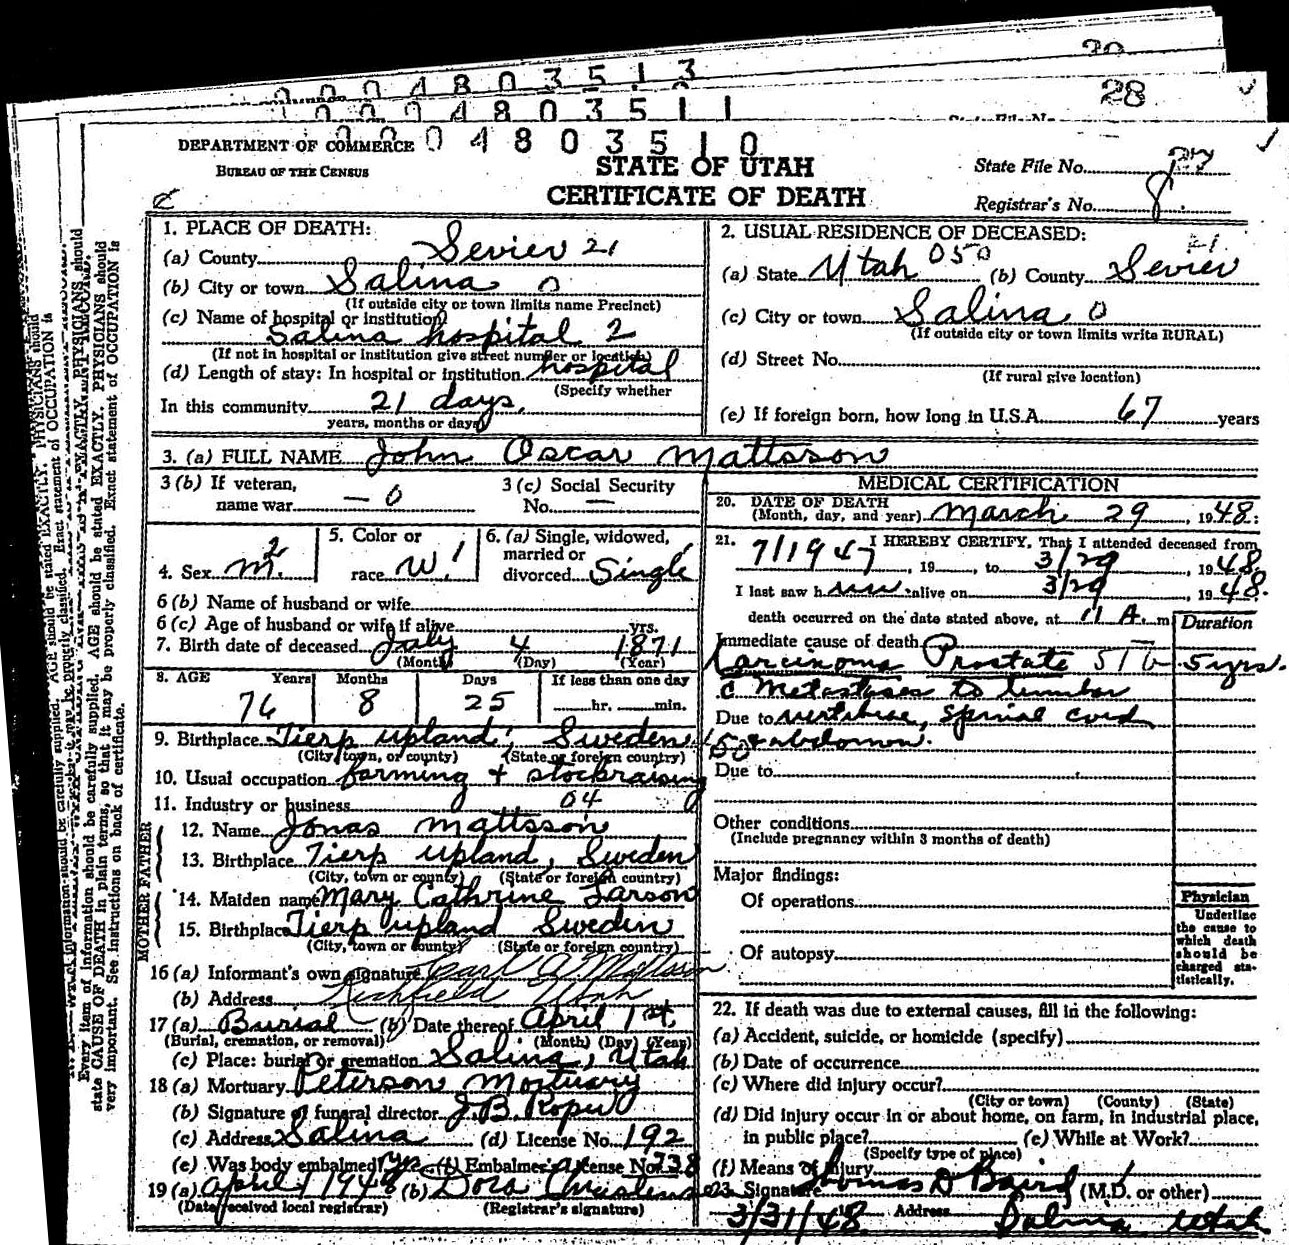 20
0 0 0 4 8 0 3 5 1 3
28
0 0 0 4 8 0 3 5 1 1
State File No.
DEPARTMENT OF COMMERCE 0 0 0 4 8 0 3 5 1 0
BUREAU OF THE CENSUS
STATE OF UTAH
CERTIFICATE OF DEATH
State File No. 27
Registrar's No. 8
1. PLACE OF DEATH:
(a) County Sevier 21
(b) City or town Salina 0
(If outside city or town limits name Precinct)
(c) Name of hospital or institution
Salina hospital 2
(If not in hospital or institution give street number or location)
(d) Length of stay: In hospital or institution hospital
(Specify whether
In this community 21 days.
years, months or days)
2. USUAL RESIDENCE OF DECEASED:
21
(a) State Utah 050 (b) County Sevier
(c) City or town Salina 0
(If outside city or town limits write RURAL)
(d) Street No.
(If rural give location)
(e) If foreign born, how long in U.S.A. 67 years
3. (a) FULL NAME John Oscar Mattsson
3 (b) If veteran,
name war — 0
3 (c) Social Security
No. —
4. Sex m. 2
5. Color or
race W. 1
6. (a) Single, widowed,
married or
divorced Single
6 (b) Name of husband or wife
6 (c) Age of husband or wife if alive yrs.
7. Birth date of deceased July 4 1871
(Month) (Day) (Year)
8. AGE Years Months Days If less than one day
76 8 25 hr. min.
9. Birthplace Tierp upland, Sweden
(City, town, or county) (State or foreign country)
10. Usual occupation farming + stockraising
11. Industry or business 04
FATHER
12. Name Jonas Mattsson
13. Birthplace Tierp upland, Sweden
(City, town or county) (State or foreign country)
MOTHER
14. Maiden name Mary Cathrine Larson
15. Birthplace Tierp upland Sweden
(City, town or county) (State or foreign country)
16 (a) Informant's own signature
(b) Address Richfield Utah
17 (a) Burial (b) Date thereof April 1st.
(Burial, cremation, or removal) (Month) (Day) (Year)
(c) Place: burial or cremation Salina, Utah
18 (a) Mortuary Peterson Mortuary
(b) Signature of funeral director J.B. Roper
(c) Address Salina (d) License No. 192
(e) Was body embalmed? yes (f) Embalmer's License No. 238
19 (a) April 1 1948 (b) Dora
(Date received local registrar) (Registrar's signature)
MEDICAL CERTIFICATION
20. DATE OF DEATH
(Month, day, and year) March 29, 1948
21. I HEREBY CERTIFY, That I attended deceased from
7/1947, 19 , to 3/29, 1948
I last saw h alive on 3/29 1948.
death occurred on the date stated above, at 11 A. m. Duration
Immediate cause of death
Carcinoma Prostate 51b 5 yrs.
c Metastases to lumbar
Due to vertebrae, spinal cord
& abdomen.
Due to
Other conditions
(Include pregnancy within 3 months of death)
Major findings:
Of operations
Of autopsy
Physician
Underline
the cause to
which death
should be
charged sta-
tistically.
22. If death was due to external causes, fill in the following:
(a) Accident, suicide, or homicide (specify)
(b) Date of occurrence
(c) Where did injury occur?
(City or town) (County) (State)
(d) Did injury occur in or about home, on farm, in industrial place,
in public place? (e) While at Work?
(Specify type of place)
(f) Means of injury
23. Signature Thomas D Baird (M.D. or other)
3/31/48 Address Salina Utah
Every item of information should be carefully supplied. AGE should be stated EXACTLY. PHYSICIANS should
state CAUSE OF DEATH in plain terms, so that it may be properly classified. Exact statement of OCCUPATION is
very important. See instructions on back of certificate.